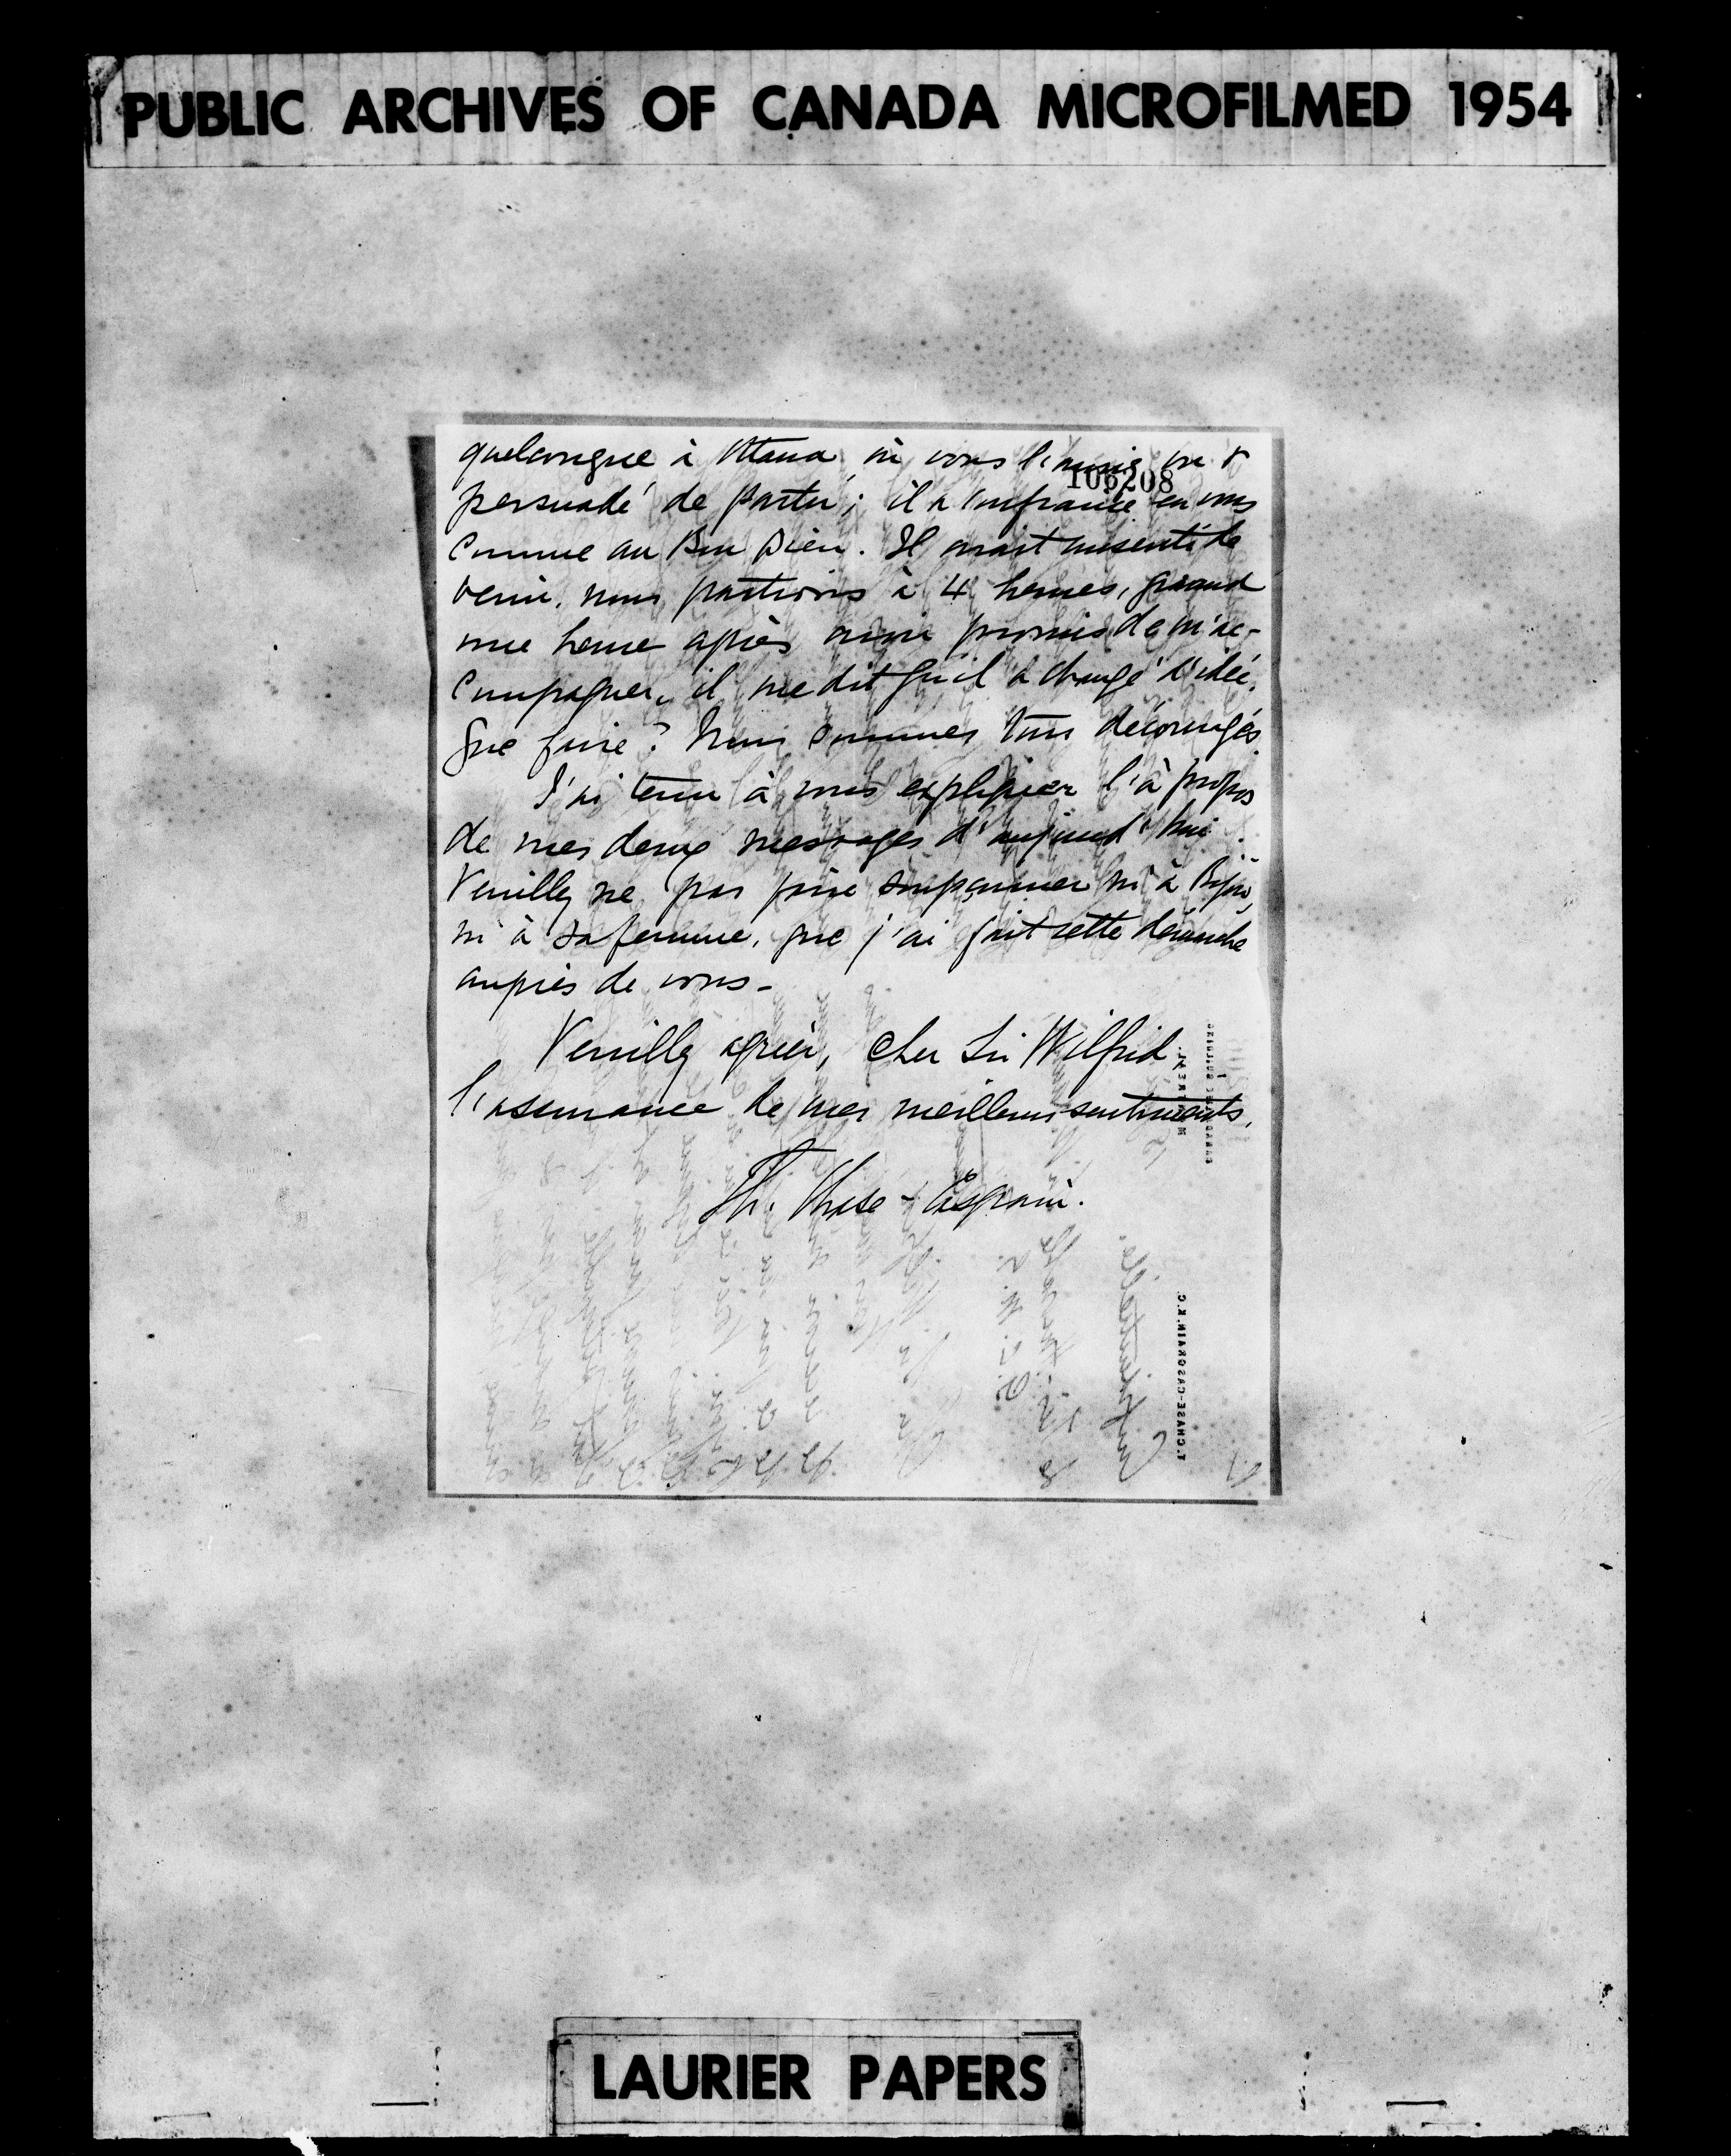 PUBLIC ARCHIVES OF CANADA MICROFILMED 1954
106208
quelconque à Ottawa où vous l'auriez
persuadé de partir; il a confiance en vous
comme au Bon Dieu. Il avait consenti de
venir, nous partions à 4 heures, quand
une heure après avoir promis de m'ac-
compagner, il me dit qu'il a changé d'idée.
Que faire? Nous sommes tous découragés.
J'ai tenu à vous expliquer l'à propos
de mes deux messages d'aujourd'hui.
Veuillez ne pas faire soupçonner ni à
ni à sa femme, que j'ai fait cette démarche
auprès de vous -
Veuillez agréer, cher Sir Wilfrid
l'assurance de mes meilleurs sentiments.
Th. Chase-Casgrain.
T. CHASE-CASGRAIN, K.C.
LAURIER PAPERS